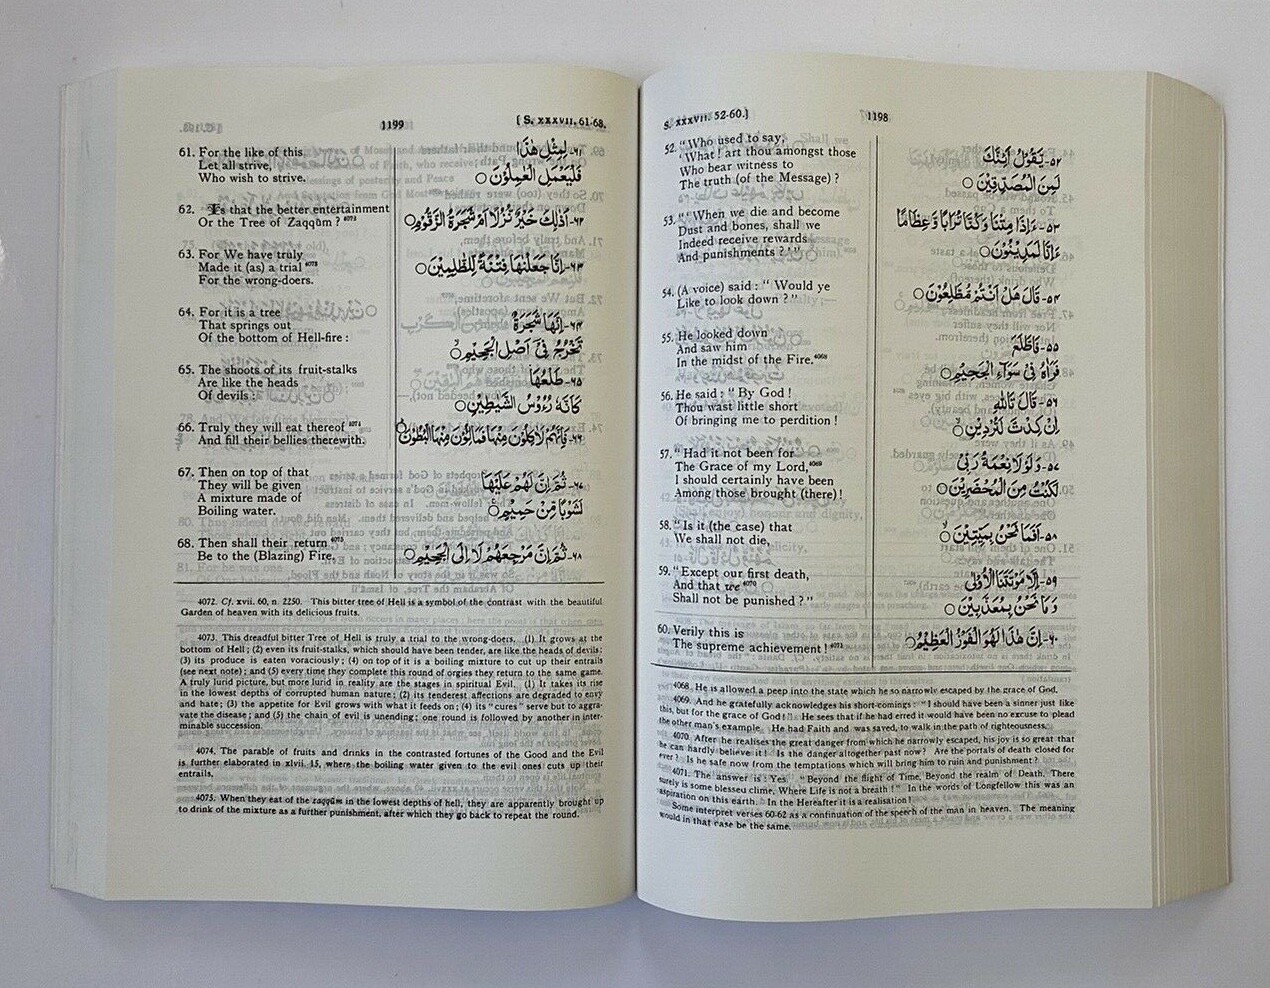 S. XXXVII. 52-60.] 1198
52. "Who used to say,
'What! art thou amongst those
Who bear witness to
The truth (of the Message)?
53. "'When we die and become
Dust and bones, shall we
Indeed receive rewards
And punishments?'"
54. (A voice) said: "Would ye
Like to look down?"
55. He looked down
And saw him
In the midst of the Fire.4068
56. He said: "By God!
Thou wast little short
Of bringing me to perdition!
57. "Had it not been for
The Grace of my Lord,4069
I should certainly have been
Among those brought (there)!
58. "Is it (the case) that
We shall not die,
59. "Except our first death,
And that we4070
Shall not be punished?"
60. Verily this is
The supreme achievement!4071
٥٢- يَقُوْلُ أَئِنَّكَ
لَمِنَ الْمُصَدِّقِيْنَ ○
٥٣- ءَاِذَا مِتْنَا وَكُنَّا تُرَابًا وَّعِظَامًا
ءَاِنَّا لَمَدِيْنُوْنَ ○
٥٤- قَالَ هَلْ اَنْتُمْ مُّطَّلِعُوْنَ ○
٥٥- فَاطَّلَعَ
فَرَاٰهُ فِىْ سَوَآءِ الْجَحِيْمِ ○
٥٦- قَالَ تَاللّٰهِ
اِنْ كِدْتَّ لَتُرْدِيْنِ ○
٥٧- وَلَوْلَا نِعْمَةُ رَبِّىْ
لَكُنْتُ مِنَ الْمُحْضَرِيْنَ ○
٥٨- اَفَمَا نَحْنُ بِمَيِّتِيْنَ ○
٥٩- اِلَّا مَوْتَتَنَا الْاُوْلٰى
وَمَا نَحْنُ بِمُعَذَّبِيْنَ ○
٦٠- اِنَّ هٰذَا لَهُوَ الْفَوْزُ الْعَظِيْمُ ○
4068. He is allowed a peep into the state which he so narrowly escaped by the grace of God.
4069. And he gratefully acknowledges his short-comings: "I should have been a sinner just like
this, but for the grace of God!" He sees that if he had erred it would have been no excuse to plead
the other man's example. He had Faith and was saved, to walk in the path of righteousness.
4070. After he realises the great danger from which he narrowly escaped, his joy is so great that
he can hardly believe it! Is the danger altogether past now? Are the portals of death closed for
ever? Is he safe now from the temptations which will bring him to ruin and punishment?
4071. The answer is: Yes. "Beyond the flight of Time, Beyond the realm of Death, There
surely is some blessed clime, Where Life is not a breath!" In the words of Longfellow this was an
aspiration on this earth. In the Hereafter it is a realisation!
Some interpret verses 60-62 as a continuation of the speech of the man in heaven. The meaning
would in that case be the same.
1199 [S. XXXVII. 61-68.
61. For the like of this
Let all strive,
Who wish to strive.
62. Is that the better entertainment
Or the Tree of Zaqqūm?4072
63. For We have truly
Made it (as) a trial4073
For the wrong-doers.
64. For it is a tree
That springs out
Of the bottom of Hell-fire:
65. The shoots of its fruit-stalks
Are like the heads
Of devils:
66. Truly they will eat thereof4074
And fill their bellies therewith.
67. Then on top of that
They will be given
A mixture made of
Boiling water.
68. Then shall their return4075
Be to the (Blazing) Fire.
٦١- لِمِثْلِ هٰذَا
فَلْيَعْمَلِ الْعٰمِلُوْنَ ○
٦٢- اَذٰلِكَ خَيْرٌ نُّزُلًا اَمْ شَجَرَةُ الزَّقُّوْمِ ○
٦٣- اِنَّا جَعَلْنٰهَا فِتْنَةً لِّلظّٰلِمِيْنَ ○
٦٤- اِنَّهَا شَجَرَةٌ
تَخْرُجُ فِىْٓ اَصْلِ الْجَحِيْمِ ○
٦٥- طَلْعُهَا
كَاَنَّهٗ رُءُوْسُ الشَّيٰطِيْنِ ○
٦٦- فَاِنَّهُمْ لَاٰكِلُوْنَ مِنْهَا فَمَالِئُوْنَ مِنْهَا الْبُطُوْنَ ○
٦٧- ثُمَّ اِنَّ لَهُمْ عَلَيْهَا
لَشَوْبًا مِّنْ حَمِيْمٍ ○
٦٨- ثُمَّ اِنَّ مَرْجِعَهُمْ لَاْ اِلَى الْجَحِيْمِ ○
4072. Cf. xvii. 60, n. 2250. This bitter tree of Hell is a symbol of the contrast with the beautiful
Garden of heaven with its delicious fruits.
4073. This dreadful bitter Tree of Hell is truly a trial to the wrong-doers. (1) It grows at the
bottom of Hell; (2) even its fruit-stalks, which should have been tender, are like the heads of devils;
(3) its produce is eaten voraciously; (4) on top of it is a boiling mixture to cut up their entrails
(see next note); and (5) every time they complete this round of orgies they return to the same game.
A truly lurid picture, but more lurid in reality are the stages in spiritual Evil. (1) It takes its rise
in the lowest depths of corrupted human nature; (2) its tenderest affections are degraded to envy
and hate; (3) the appetite for Evil grows with what it feeds on; (4) its "cures" serve but to aggra-
vate the disease; and (5) the chain of evil is unending; one round is followed by another in inter-
minable succession.
4074. The parable of fruits and drinks in the contrasted fortunes of the Good and the Evil
is further elaborated in xlvii. 15, where the boiling water given to the evil ones cuts up their
entrails.
4075. When they eat of the zaqqūm in the lowest depths of hell, they are apparently brought up
to drink of the mixture as a further punishment, after which they go back to repeat the round.